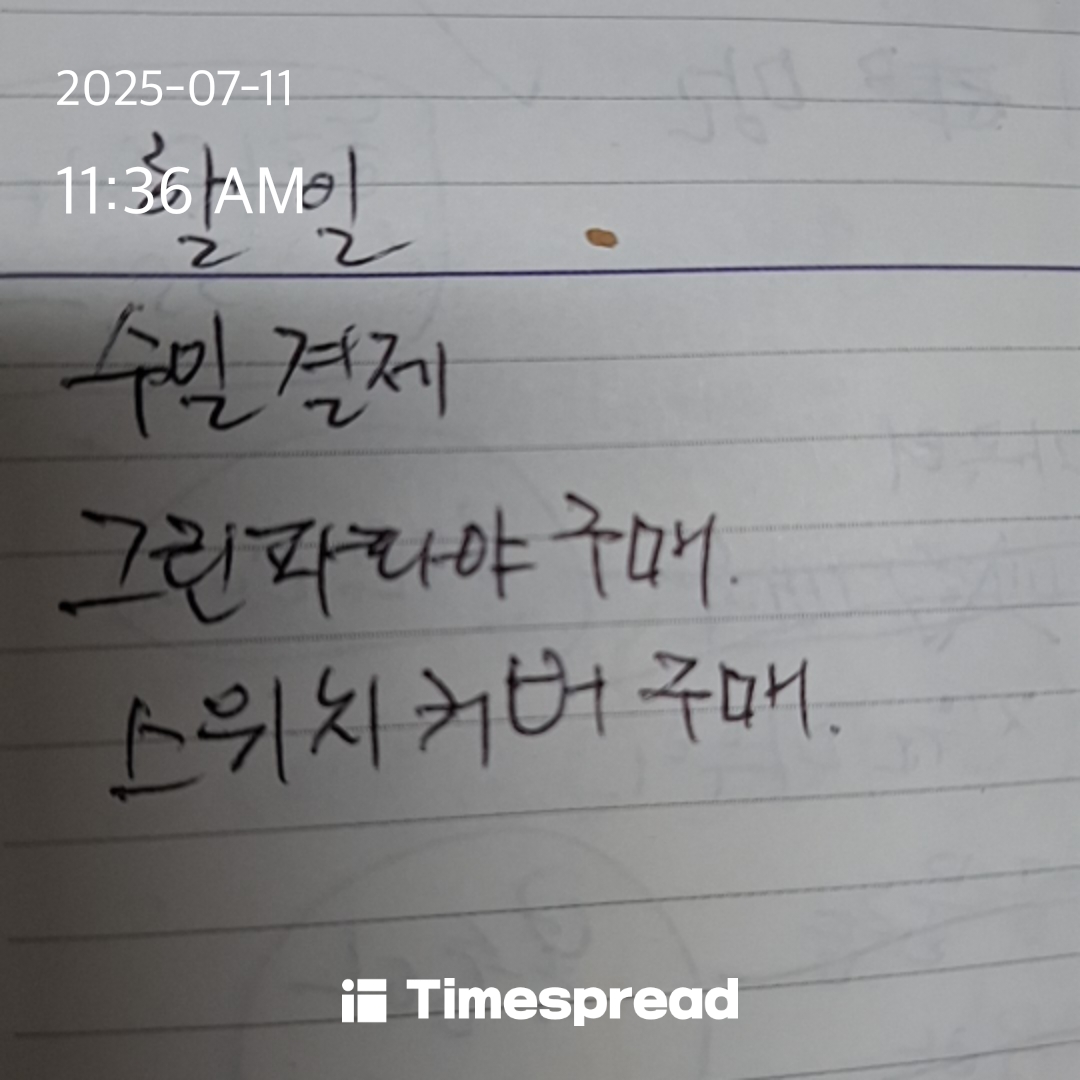 2025-07-11
11:36 AM
할 일
수밀 결제
그린파파야 구매.
스위치 커버 구매.
Timespread